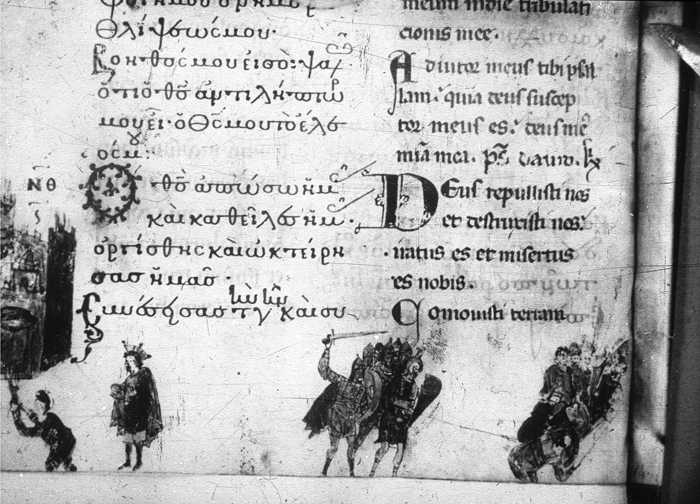 θλίψεώς μου·
Βοηθός μου εἶ σοι ψαλ
ὅτι ὁ θς ἀντιλήπτω
μου εἶ· ὁ θς μου τὸ ἔλε
ος μου
ΝΘ
Ο θς ἀπώσω ἡμ
καὶ καθεῖλες ἡμ·
ὀργίσθης καὶ ὠκτείρη
σας ἡμᾶς
καὶ συ
meum in die tribulati
cionis mee.
Adiutor meus tibi psal
lam. quia deus suscep
tor meus es. deus me
mia mea. ps. dauid. lix
Deus repullisti nos
et destruxisti nos.
iratus es et misertus
es nobis.
Comouisti terram